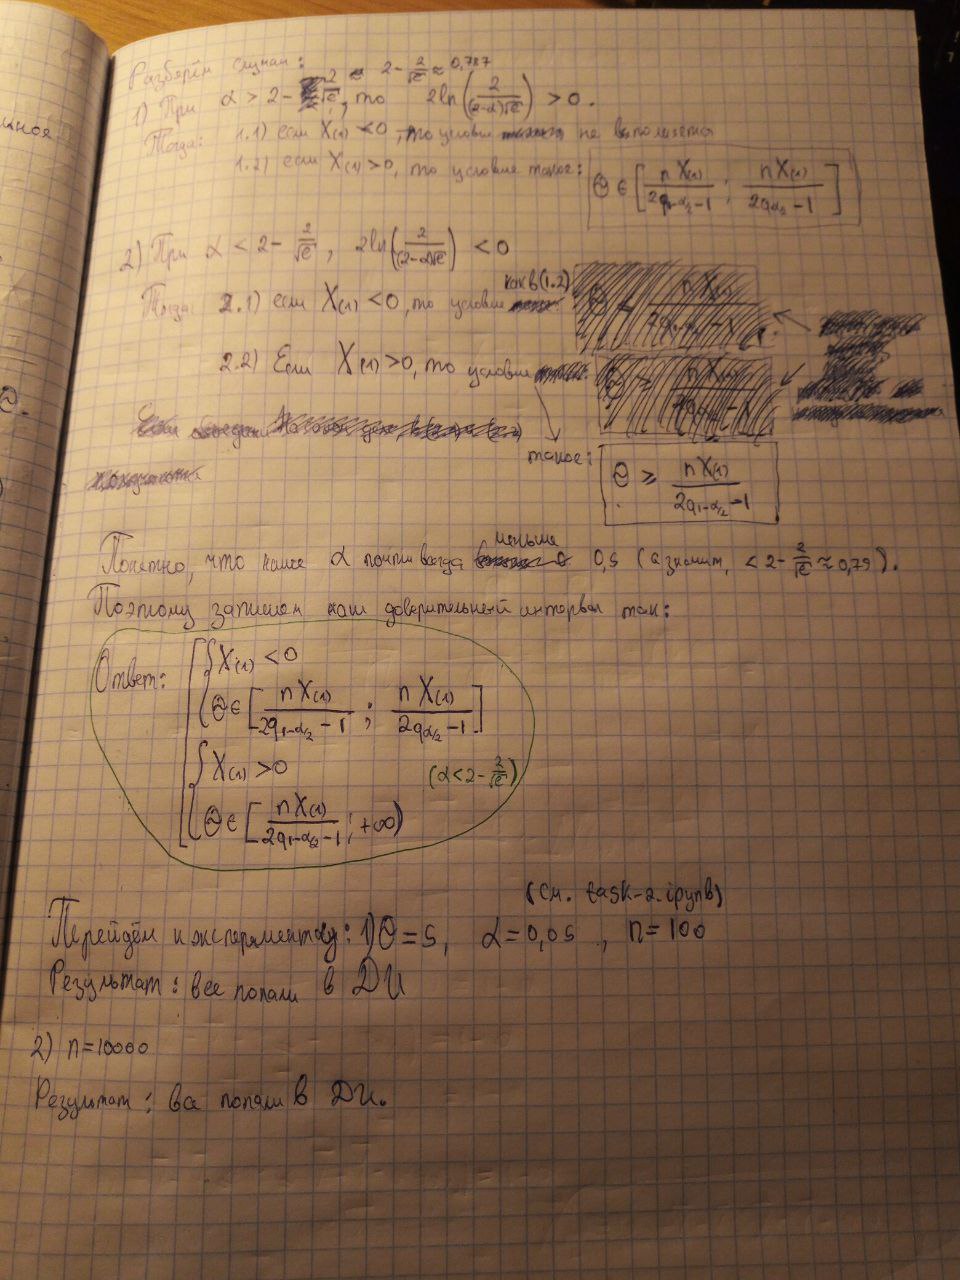 ная
Разберём случаи:
1) При α > 2 - 2/√e ≈ 2 - 2/√e ≈ 0,787, то 2ln(2/((2-α)√e)) > 0.
Тогда: 1.1) если X(1) < 0, то условие не выполняется
1.2) если X(1) > 0, то условие такое: θ ∈ [nX(1)/(2q1-α/2 - 1) ; nX(1)/(2qα/2 - 1)]
2) При α < 2 - 2/√e, 2ln(2/((2-α)√e)) < 0
Тогда 2.1) если X(1) < 0, то условие как в (1.2)
2.2) Если X(1) > 0, то условие
такое: θ ≥ nX(1)/(2q1-α/2 - 1)
Понятно, что наше α почти всегда меньше 0,5 (а значит, < 2 - 2/√e ≈ 0,79).
Поэтому запишем наш доверительный интервал так:
Ответ: [ { X(1) < 0
θ ∈ [nX(1)/(2q1-α/2 - 1) ; nX(1)/(2qα/2 - 1)]
{ X(1) > 0 (α < 2 - 2/√e)
θ ∈ [nX(1)/(2q1-α/2 - 1) ; +∞)
(см. task-2.ipynb)
Перейдём к эксперименту: 1) θ = 5, α = 0,05, n = 100
Результат: все попали в ДИ
2) n = 10000
Результат: все попали в ДИ.